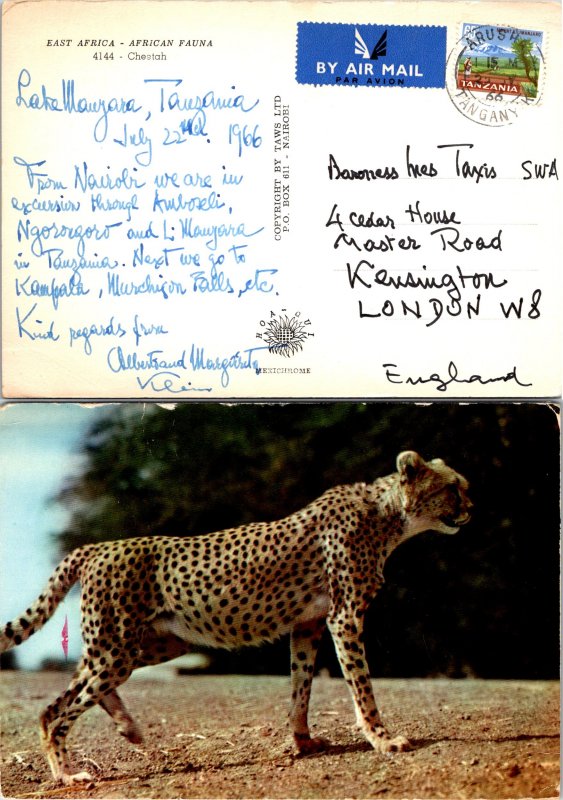 EAST AFRICA - AFRICAN FAUNA
4144 - Cheetah
Lake Manyara, Tanzania
July 22nd. 1966
From Nairobi we are in
excursion through Amboseli,
Ngorongoro and L. Manyara
in Tanzania. Next we go to
Kampala, Murchison Falls, etc.
Kind regards from
Albert and Margarita
Klein
COPYRIGHT BY TAWS LTD
P.O. BOX 611 - NAIROBI
MEXICHROME
BY AIR MAIL
PAR AVION
TANZANIA
ARUSH
TANGANY
66
Baroness Ines Taxis SWA
4 Cedar House
Master Road
Kensington
LONDON W8
England